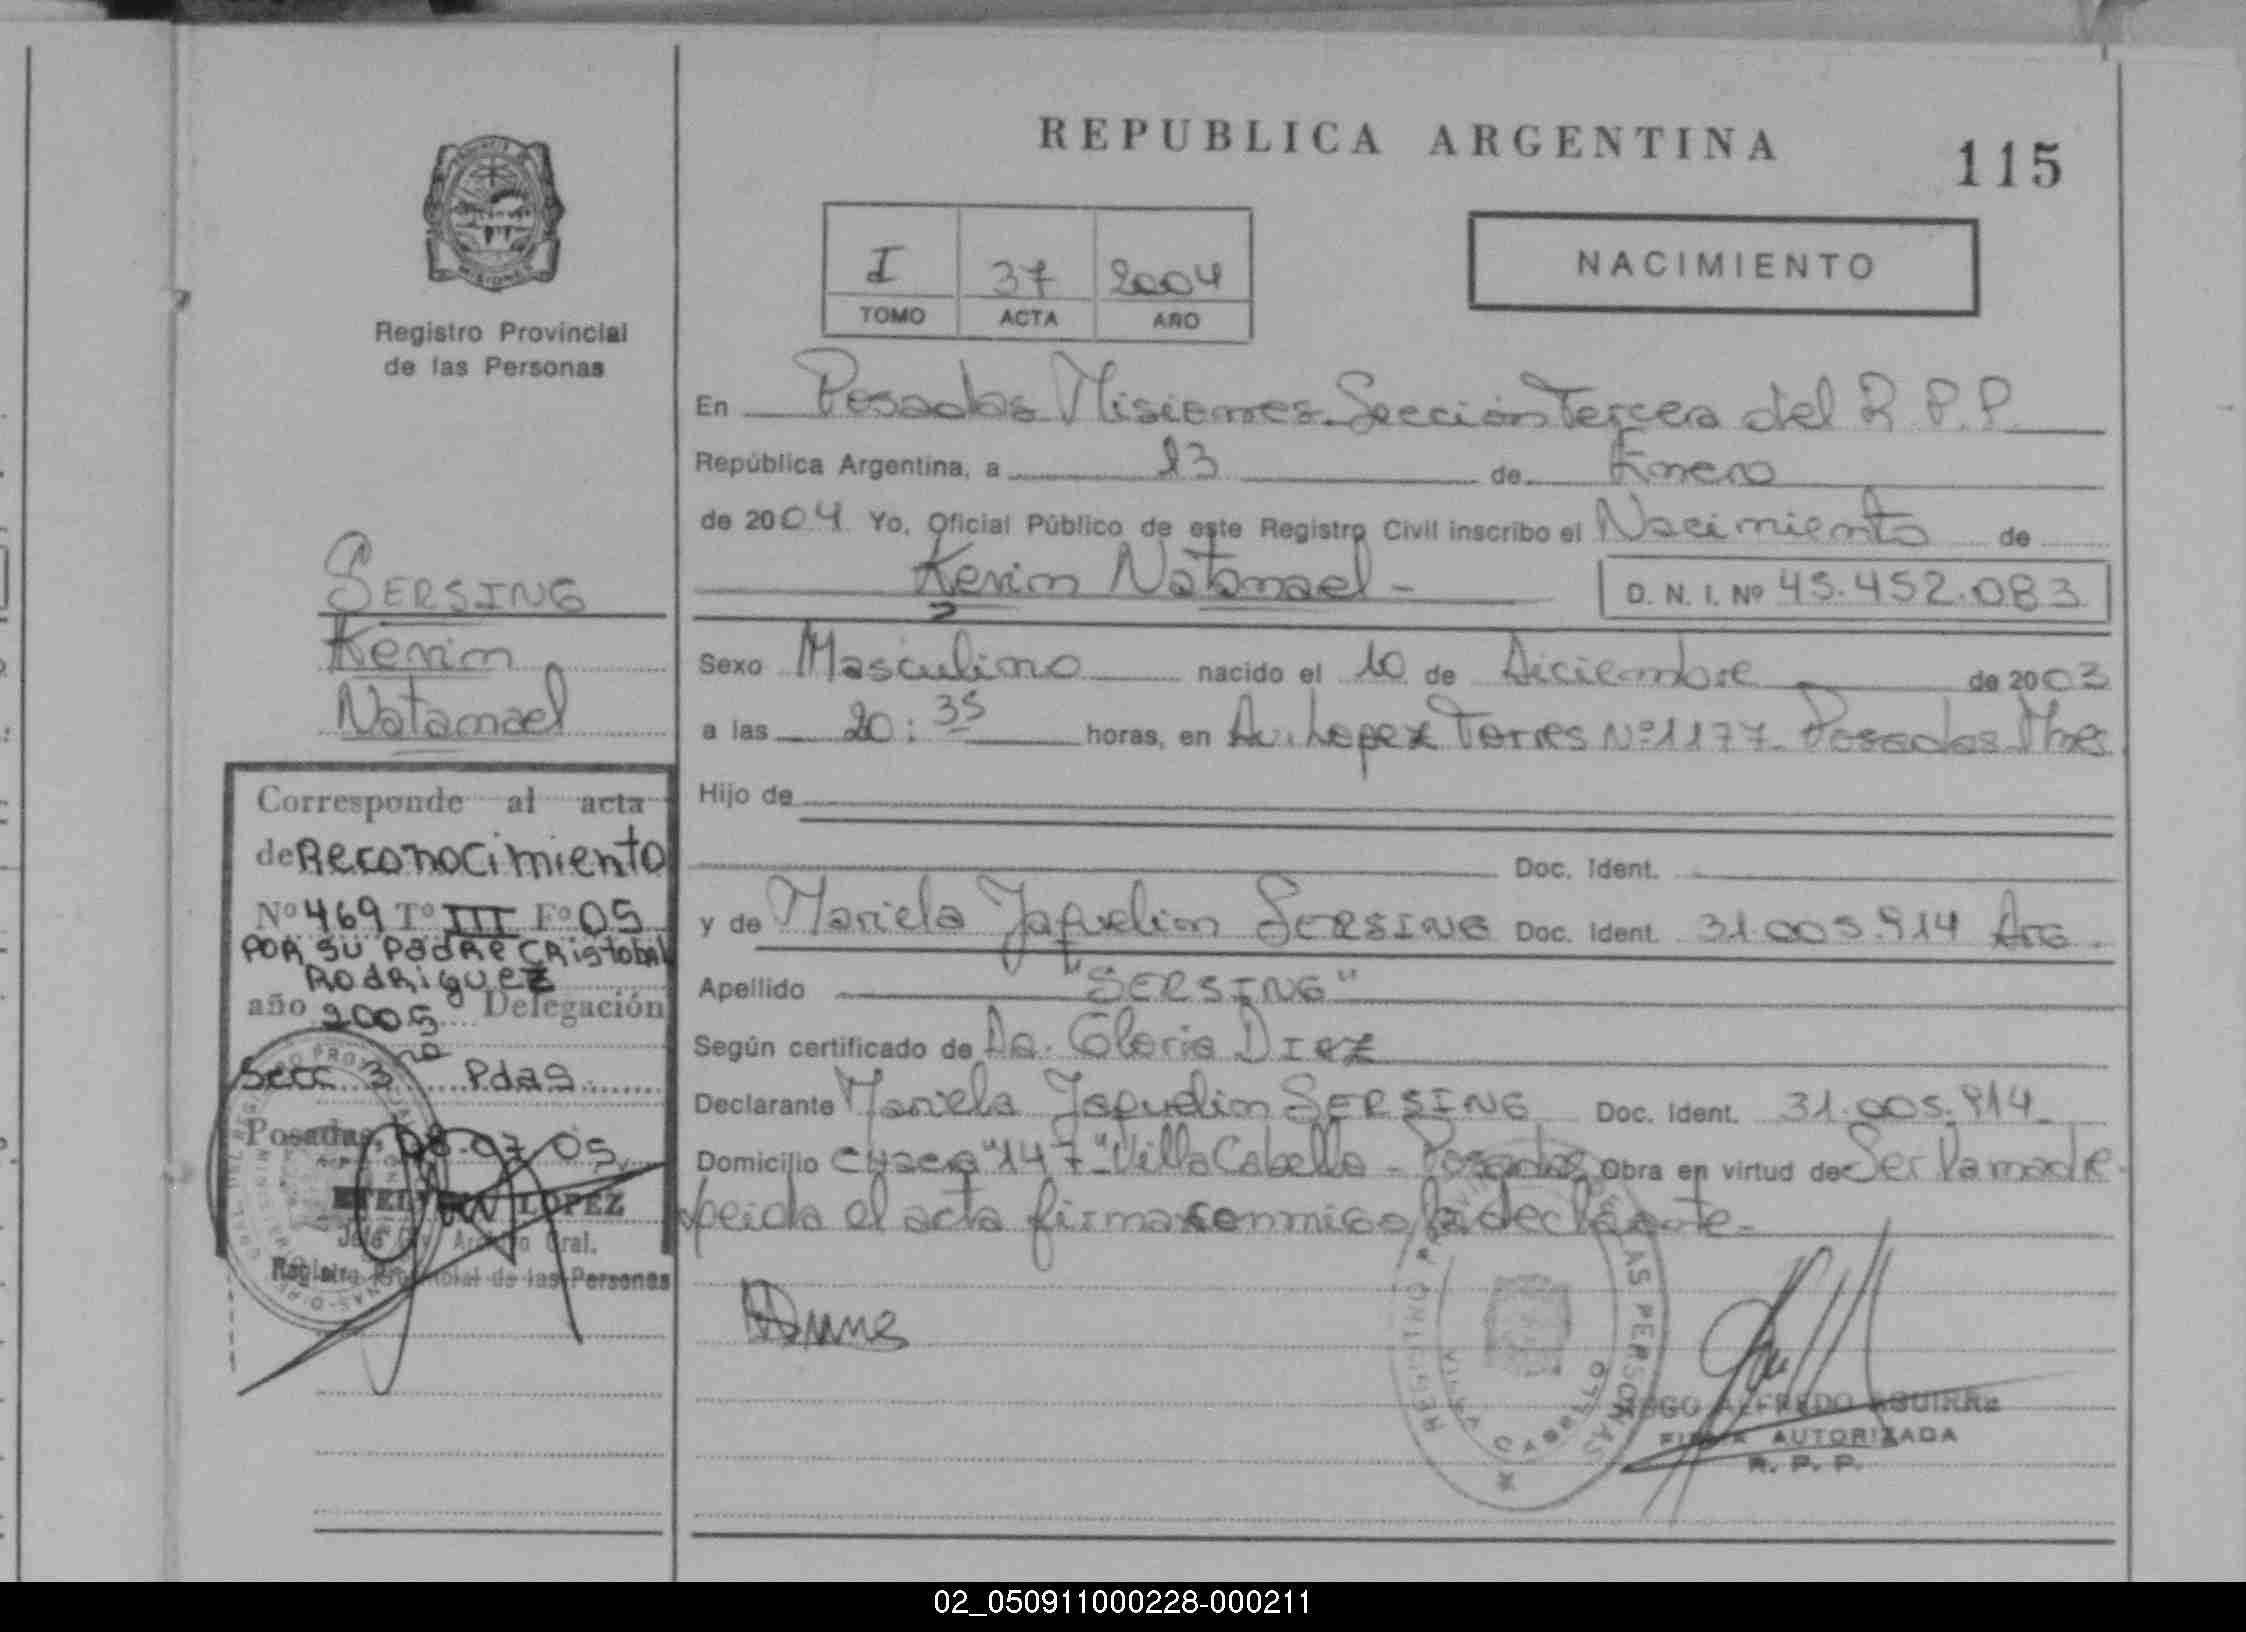 REPUBLICA ARGENTINA
115
I 37 2004
TOMO ACTA AÑO
NACIMIENTO
Registro Provincial
de las Personas
SERSING
Kevin
Natanael
Corresponde al acta
de Reconocimiento
Nº 469 Tº III Fº 05
POR SU PADRE CRistobal
RodRiguez
año 2005 Delegación
Secc 3ra Pdas
Posadas, 08-07 05
LOPEZ
Registro Provincial de las Personas
En Posadas Misiones Sección Tercera del R.P.P.
República Argentina, a 13 de Enero
de 2004 Yo, Oficial Público de este Registro Civil inscribo el Nacimiento de
Kevin Natanael -
D. N. I. Nº 45.452.083
Sexo Masculino nacido el 10 de Diciembre de 2003
a las 20:35 horas, en Av. Lopez Torres Nº 1177 Posadas Mnes
Hijo de
Doc. Ident.
y de Mariela Jaquelin SERSING Doc. Ident. 31.005.914 Arg.
Apellido "SERSING"
Según certificado de Da. Gloria Diez
Declarante Mariela Jaquelin SERSING Doc. Ident. 31.005.914
Domicilio Chacra "147" Villa Cabello - Posadas Obra en virtud de Ser la madre
leida el acta firma conmigo la declarante -
REGISTRO PROVINCIAL DE LAS PERSONAS
VILLA CABELLO
HUGO ALFREDO AGUIRRE
FIRMA AUTORIZADA
R. P. P.
02_050911000228-000211